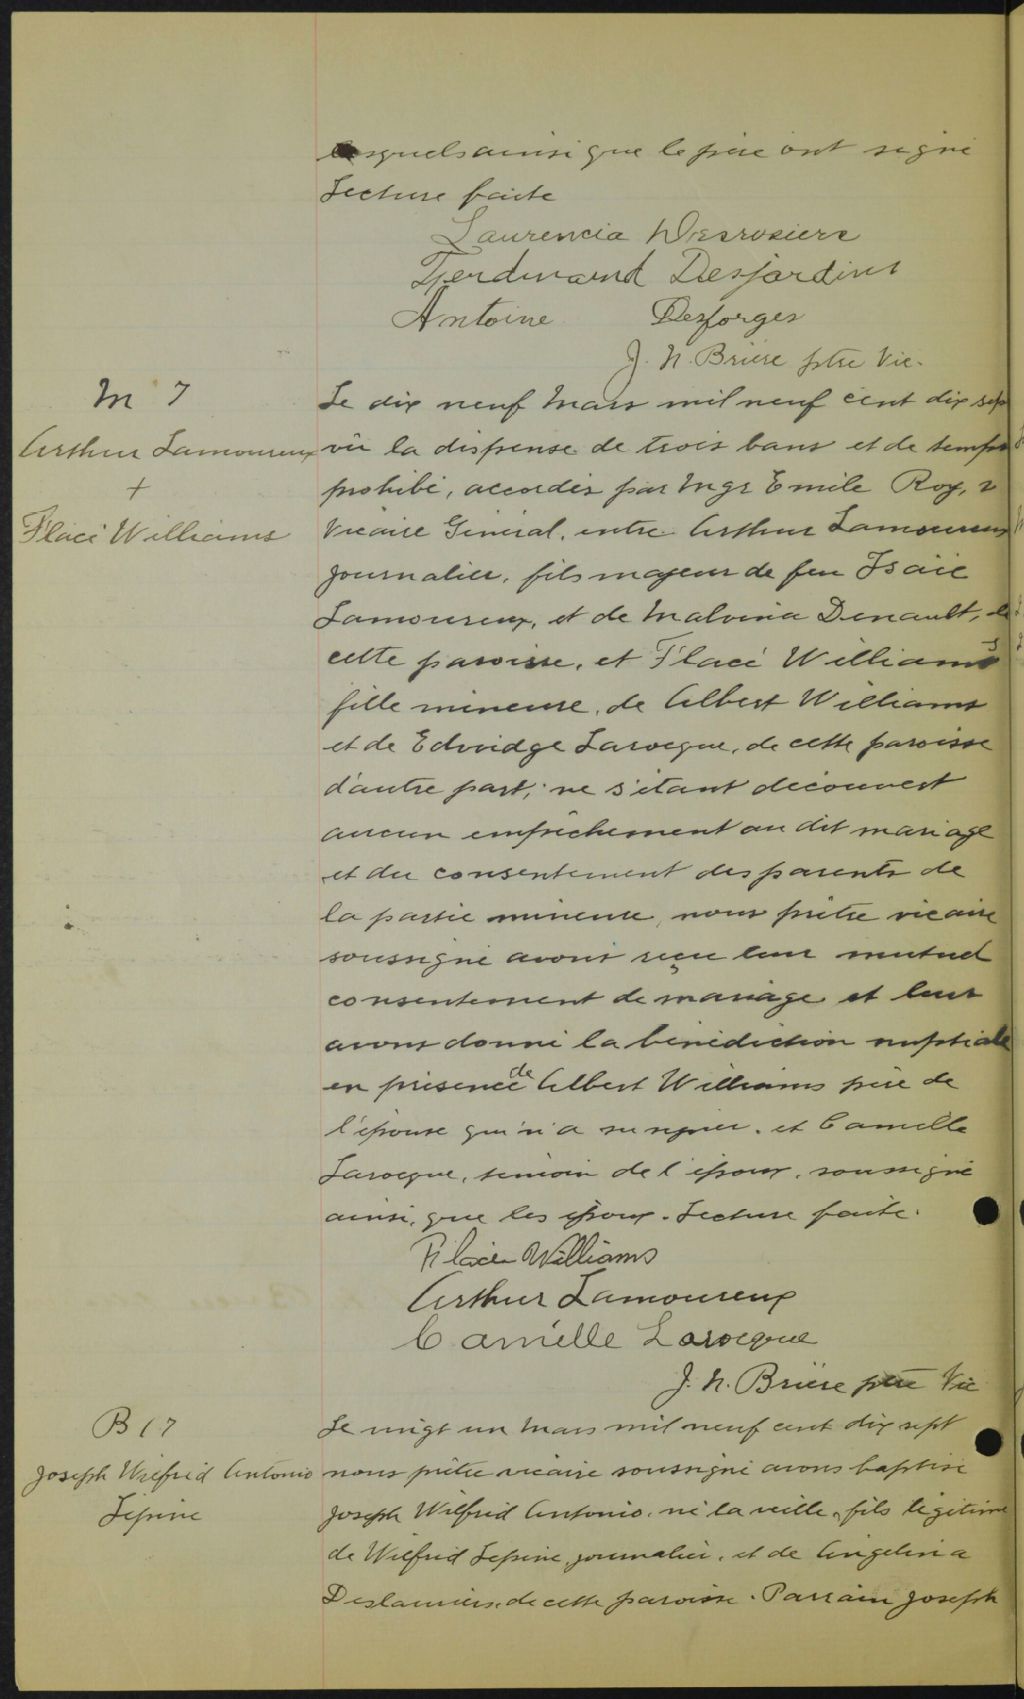 lesquels ainsi que le père ont signé
Lecture faite
Laurencia Desrosiers
Ferdinand Desjardins
Antoine Desforges
J. N. Brière ptre Vic.
M 7
Arthur Lamoureux
+
Flacé Williams
Le dix neuf Mars mil neuf cent dix sept
vû la dispense de trois bans et de temps
prohibé, accordés par Mgr Emile Roy,
Vicaire Général, entre Arthur Lamoureux
journalier, fils majeur de feu Isaïe
Lamoureux, et de Malvina Denault, de
cette paroisse, et Flacé Williams
fille mineure, de Albert Williams
et de Edwidge Larocque, de cette paroisse
d'autre part; ne s'étant découvert
aucun empêchement au dit mariage
et du consentement des parents de
la partie mineure, nous prêtre vicaire
soussigné avons reçu leur mutuel
consentement de mariage et leur
avons donné la bénédiction nuptiale
en présence de Albert Williams père de
l'épouse qui n'a su signer. et Camille
Larocque, témoin de l'époux, soussigné
ainsi, que les époux. Lecture faite.
Williams
Arthur Lamoureux
Camille Larocque
J. N. Brière ptre Vic
B 17
Joseph Wilfrid Antonio
Lépine
Le vingt un Mars mil neuf cent dix sept
nous prêtre vicaire soussigné avons baptisé
Joseph Wilfrid Antonio, né la veille, fils légitime
de Wilfrid Lepine, journalier, et de Angelina
Deslauriers, de cette paroisse. Parrain Joseph